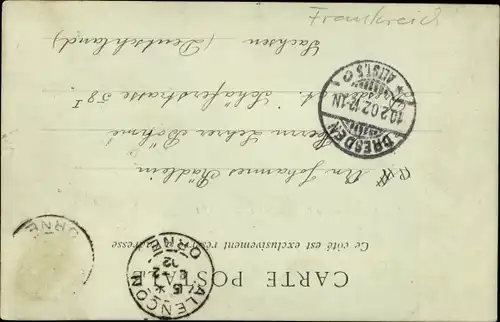 Frankreich
CARTE POSTALE
Ce côté est exclusivement réservé à l'adresse
An Johannes Rädlein
Herrn Lehrer Böhme
Schäferstrasse 58 I
Sachsen (Deutschland)
DRESDEN
ALTST. 5
10.2.02. 12-1N
ALENÇON
ORNE
ORNE